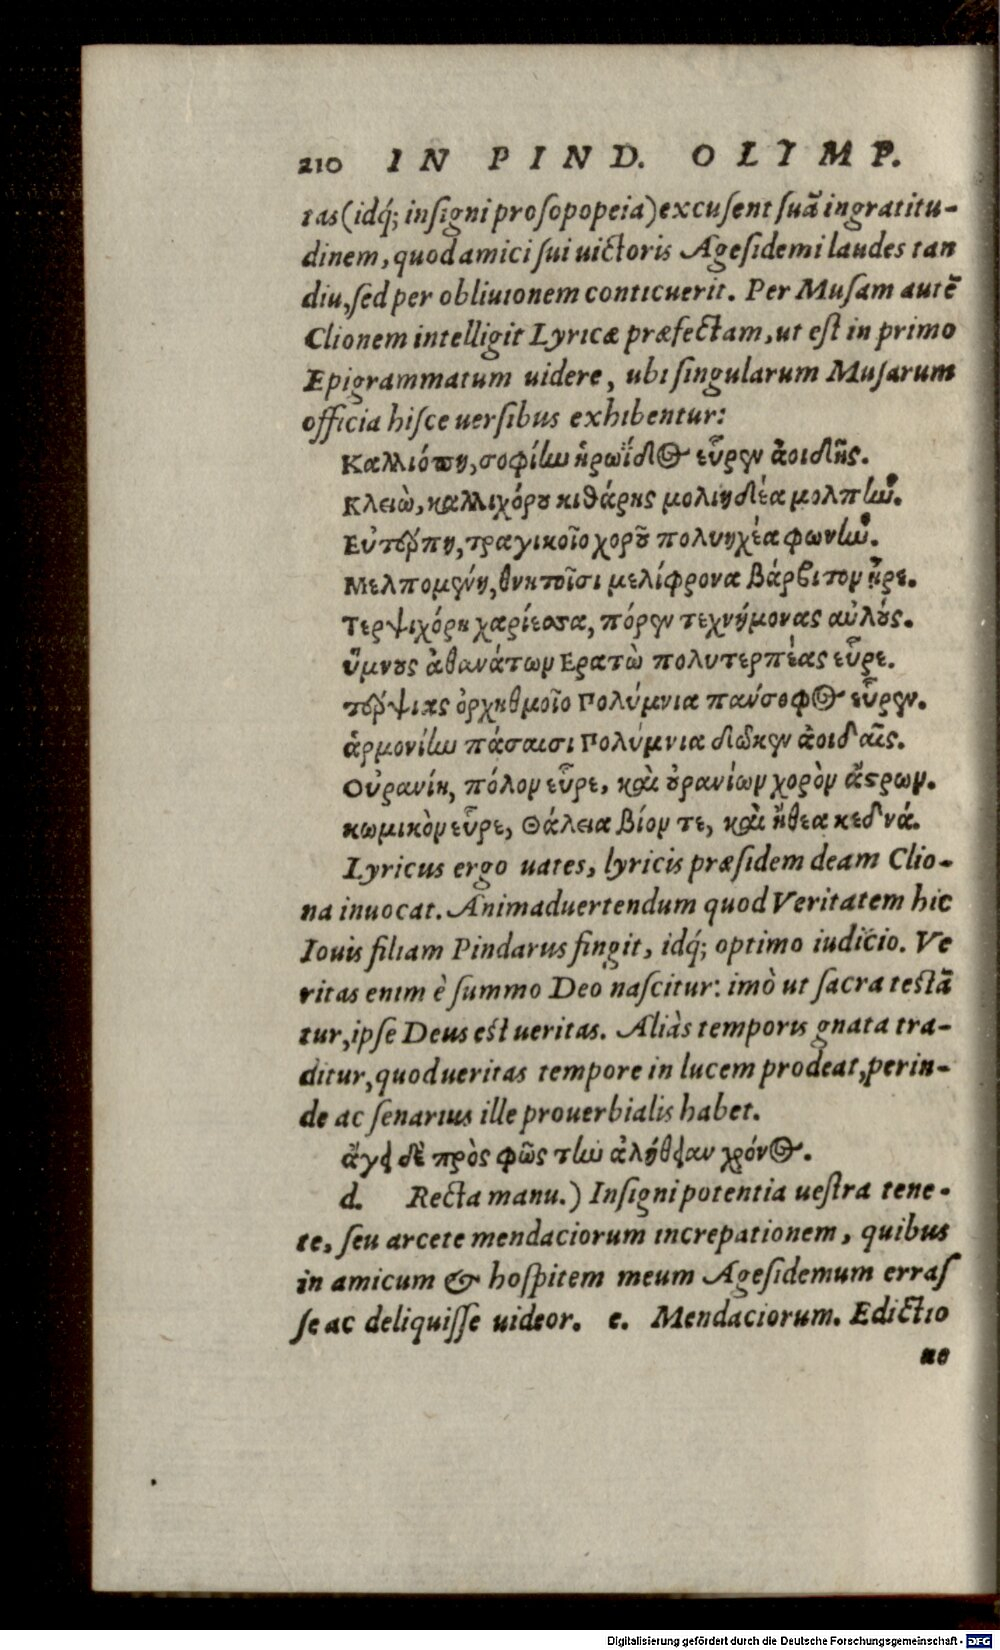 210 IN PIND. OLYMP.
tas (idq́; inſigni proſopopeia) excuſent ſuã ingratitu-
dinem, quod amici ſui uictoris Ageſidemi laudes tan
diu, ſed per obliuionem conticuerit. Per Muſam autẽ
Clionem intelligit Lyricæ præfectam, ut eſt in primo
Epigrammatum uidere, ubi ſingularum Muſarum
officia hiſce uerſibus exhibentur:
Καλλιόπη, σοφίλω ἡρωΐδιος εὗρεν ἀοιδῆς.
Κλειὼ, καλλιχόρου κιθάρης μολιηδέα μολπλώ.
Εὐτέρπη, τραγικοῖο χοροῦ πολυηχέα φωνλώ.
Μελπομένη, θνητοῖσι μελίφρονα βάρβιτον ηὗρε.
Τερψιχόρη χαρίεσσα, πόρεν τεχνήμονας αὐλούς.
ὕμνους ἀθανάτων Ερατὼ πολυτερπέας εὗρε.
τέρψιας ὀρχηθμοῖο Πολύμνια πάνσοφος εὗρεν.
ἁρμονίλω πάσαισι Πολύμνια διῶκεν ἀοιδαῖς.
Οὐρανίη, πόλον εὗρε, καὶ οὐρανίων χορὸν ἄστρων.
κωμικὸν εὗρε, Θάλεια βίον τε, καὶ ἤθεα κεδνά.
Lyricus ergo uates, lyricis præſidem deam Clio-
na inuocat. Animaduertendum quod Veritatem hic
Iouis filiam Pindarus fingit, idq́; optimo iudicio. Ve
ritas enim è ſummo Deo naſcitur: imò ut ſacra teſtã
tur, ipſe Deus eſt ueritas. Aliàs temporis gnata tra-
ditur, quod ueritas tempore in lucem prodeat, perin-
de ac ſenarius ille prouerbialis habet.
ἄγει δὲ πρὸς φῶς τλὼ ἀλήθειαν χρόνος.
d. Recta manu.) Inſigni potentia ueſtra tene-
te, ſeu arcete mendaciorum increpationem, quibus
in amicum & hoſpitem meum Ageſidemum erraſ
ſe ac deliquiſſe uideor. e. Mendaciorum. Edictio
ne
Digitalisierung gefördert durch die Deutsche Forschungsgemeinschaft - DFG